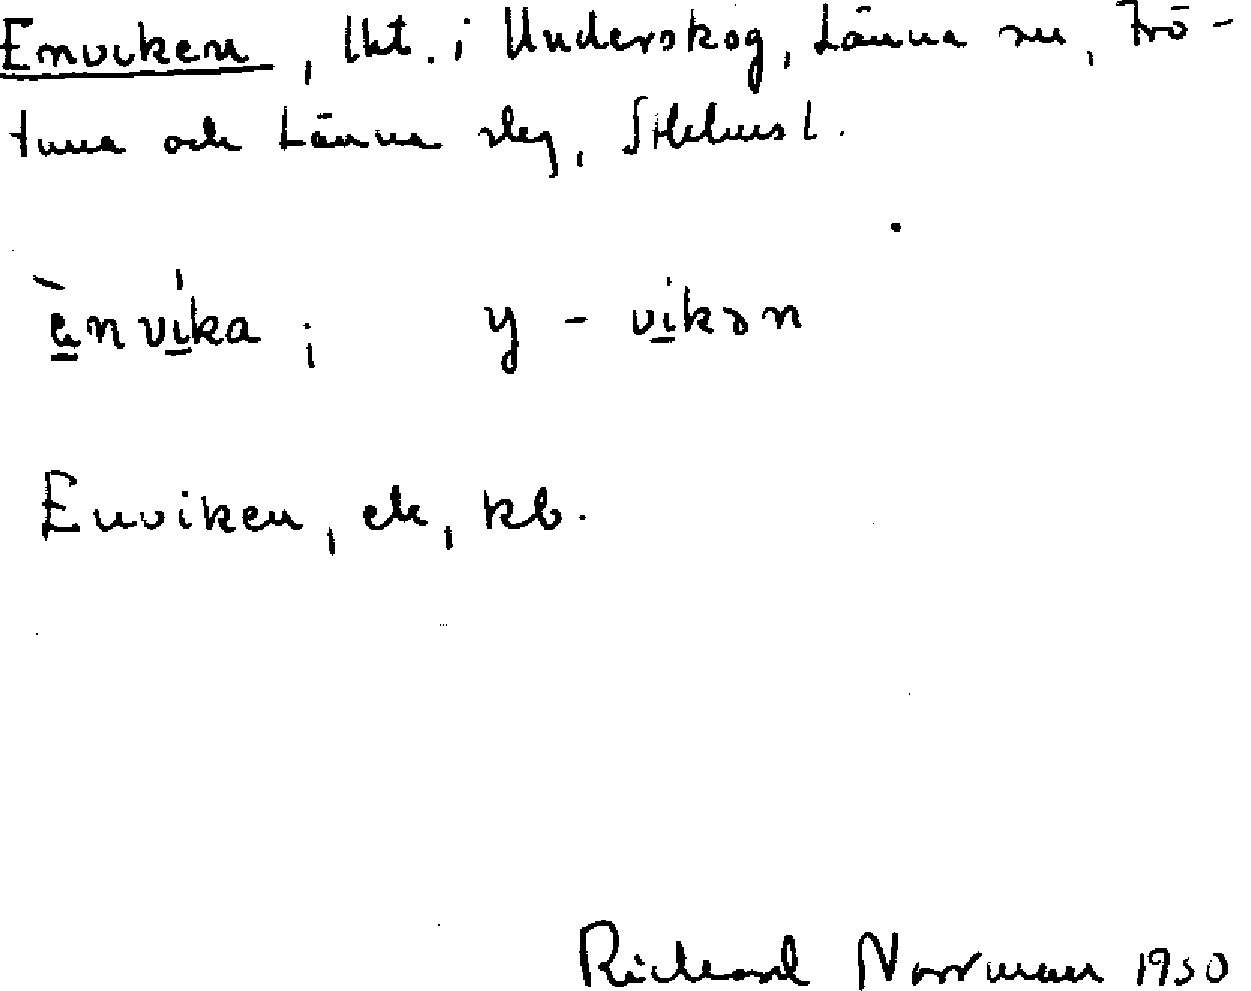 Enviken, lht. i Underskog, Länna sn, Frö-
tuna och Länna slg, Sthlms l.
ènvíka; y - vikən
Enviken, ek, kb.
Richard Norrman 1950